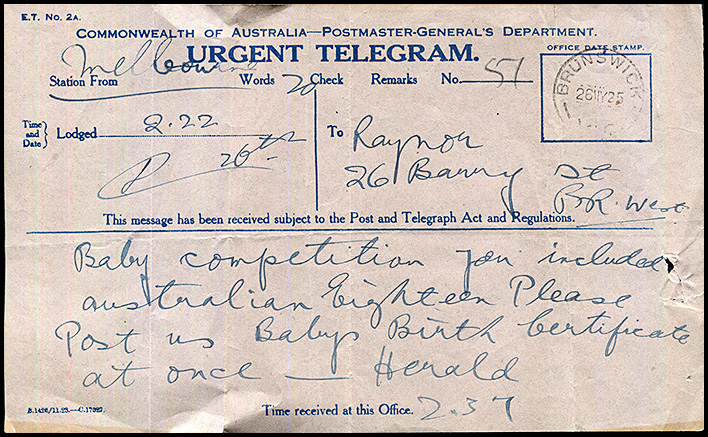 E.T. No. 2A.
COMMONWEALTH OF AUSTRALIA—POSTMASTER-GENERAL'S DEPARTMENT.
URGENT TELEGRAM.
OFFICE DATE STAMP.
Melbourne
Station From Words 20 Check Remarks No. 57
BRUNSWICK
26MY25
Time and Date} Lodged 2.22
26th
To Raynor
26 Barry St
BR. West
This message has been received subject to the Post and Telegraph Act and Regulations.
Baby competition you included
australian Eighteen Please
Post us Babys Birth Certificate
at once — Herald
B.1426/11.23.—C.17027.
Time received at this Office. 2.37